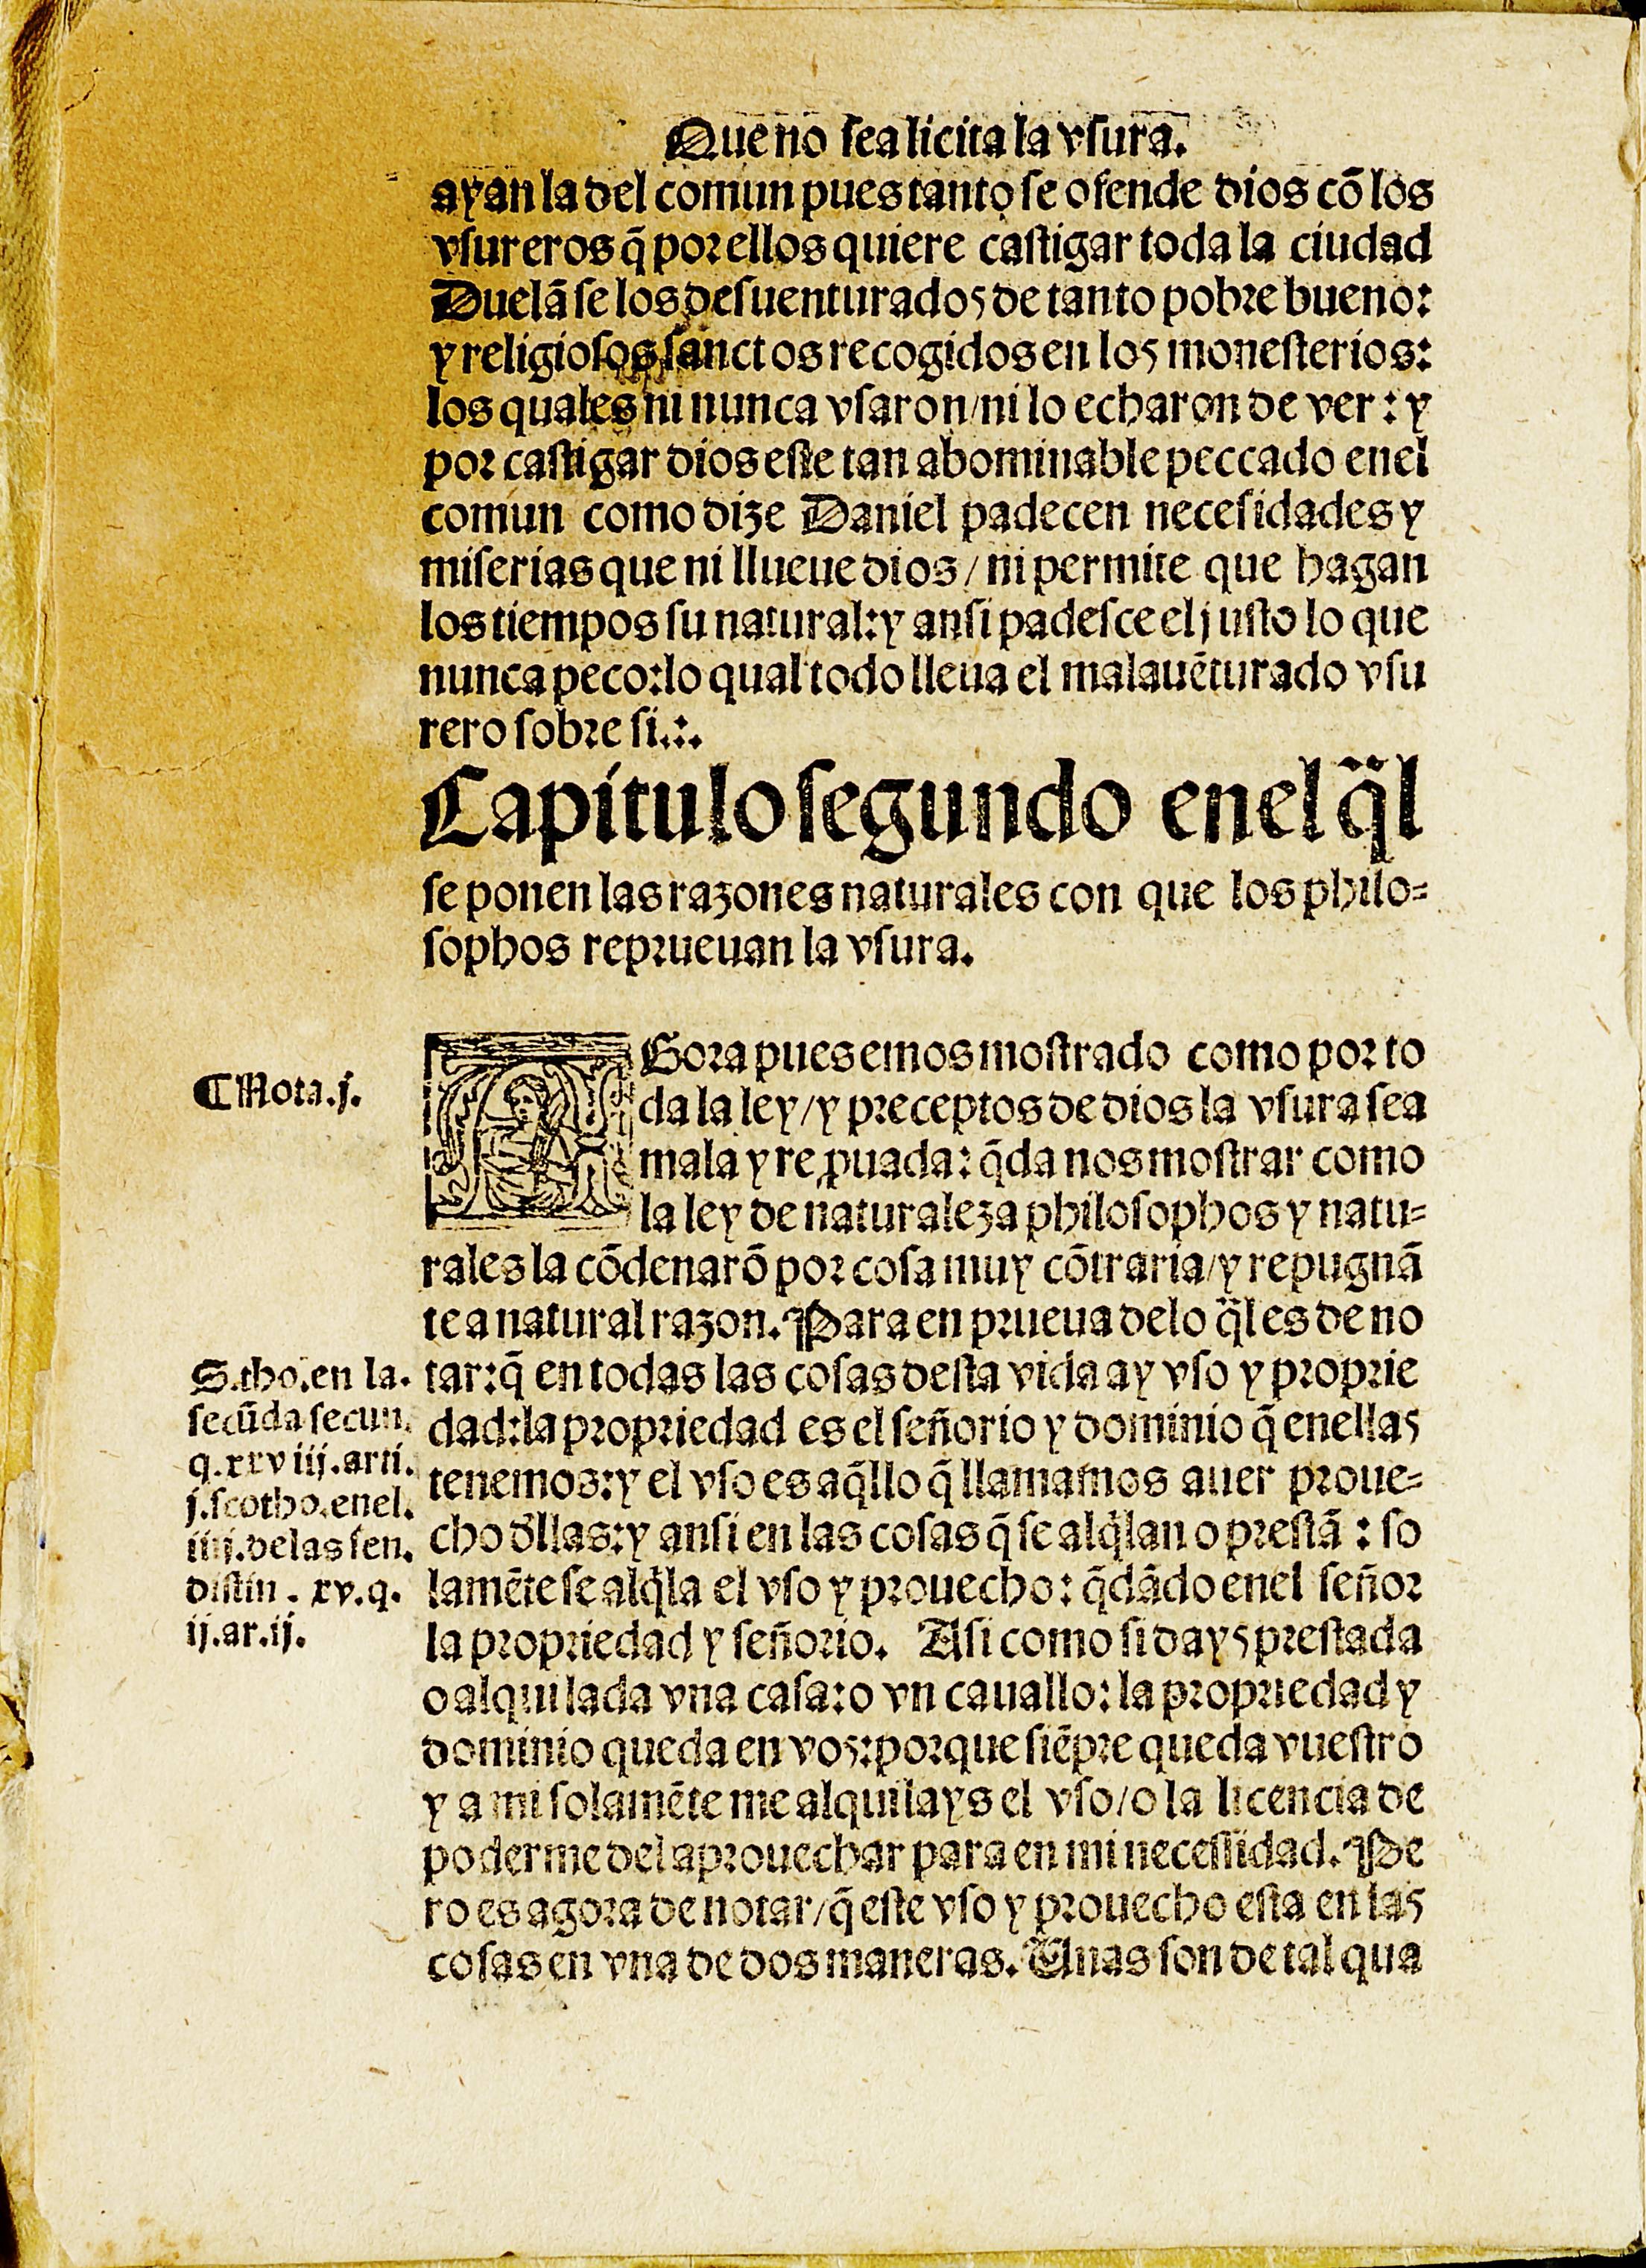 Que no sea licita la vsura.
ayan la del comun pues tanto se ofende dios cõ los
vsureros q̃ por ellos quiere castigar toda la ciudad
Duelã se los desuenturados de tanto pobre bueno:
y religiosos sanctos recogidos en los monesterios:
los quales ni nunca vsaron/ni lo echaron de ver: y
por castigar dios este tan abominable peccado enel
comun como dize Daniel padecen necesidades y
miserias que ni llueue dios/ni permite que hagan
los tiempos su natural:y ansi padesce el justo lo que
nunca peco:lo qual todo lleua el malauẽturado vsu
rero sobre si.:.
Capitulo segundo enel q̃l
se ponen las razones naturales con que los philo=
sophos reprueuan la vsura.
AGora pues emos mostrado como por to
da la ley/y preceptos de dios la vsura sea
mala y re prouada: q̃da nos mostrar como
la ley de naturaleza philosophos y natu=
rales la cõdenarõ por cosa muy cõtraria/y repugnã
te a natural razon. Para en prueua delo q̃l es de no
tar:q̃ en todas las cosas desta vida ay vso y proprie
dad:la propriedad es el señorio y dominio q̃ enellas
tenemos:y el vso es aq̃llo q̃ llamamos auer proue=
cho d̃llas:y ansi en las cosas q̃ se alq̃lan o prestã: so
lamẽte se alq̃la el vso y prouecho: q̃dãdo enel señor
la propriedad y señorio. Asi como si days prestada
o alquilada vna casa:o vn cauallo: la propriedad y
dominio queda en vos:porque siẽpre queda vuestro
y a mi solamẽte me alquilays el vso/o la licencia de
poderme del aprouechar para en mi necessidad. Pe
ro es agora de notar/q̃ este vso y prouecho esta en las
cosas en vna de dos maneras. Unas son de tal qua
¶ Nota.j.
S.tho.en la.
secũda secun.
q.xxviij.arti.
j.scotho.enel.
iiij.delas sen.
distin. xv.q.
ij.ar.ij.